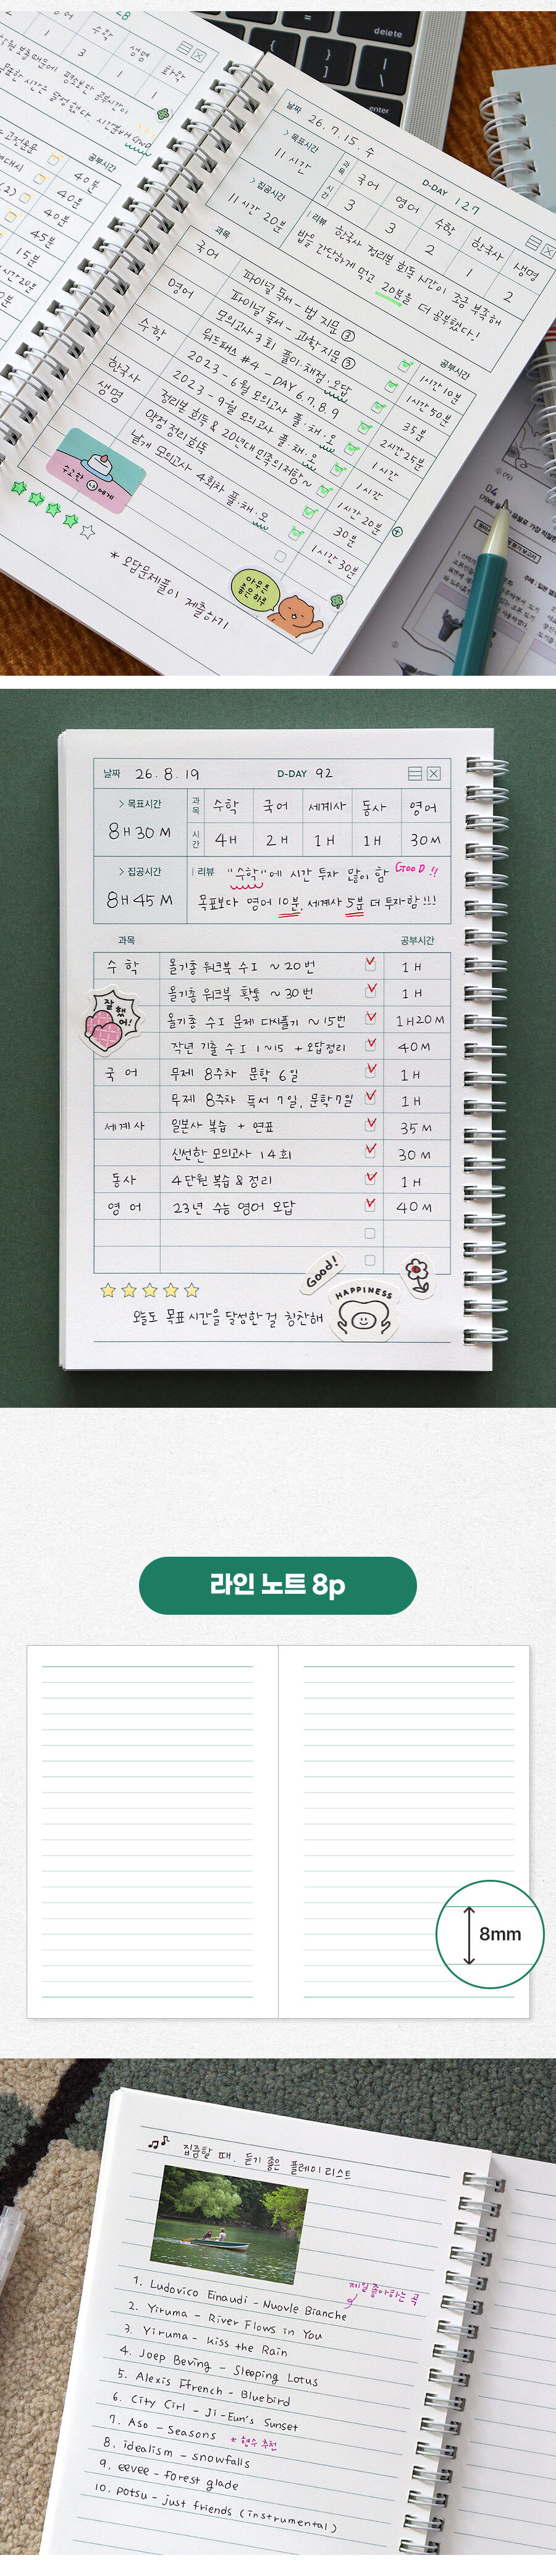 delete
enter
수학
생명
화학
1
3
1
1
공부시간
40분
40분
40분
45분
15분
날짜 26. 7. 15. 수
D-DAY 127
> 목표시간
11시간
과목
국어
영어
수학
한국사
생명
시간
3
3
2
1
2
> 집공시간
11시간 20분
리뷰 한국사 정리분 회독 시간이 조금 부족해
밥을 간단하게 먹고 20분을 더 공부했다!
과목
공부시간
국어 파이널 독서 - 법 지문 ③ 1시간 10분
파이널 독서 - 과학 지문 ③ 1시간 50분
영어 모의고사 3회 풀이·채점·오답 35분
워드패스 #4 - DAY 6.7.8.9 2시간 25분
수학 2023 - 6월 모의고사 풀·채·오 1시간
2023 - 9월 모의고사 풀·채·오 1시간
한국사 정리본 회독 & 20년대 민족의 저항 ~ 1시간 20분
생명 약점 정리 회독 30분
날개 모의고사 4회차 풀·채·오 1시간 30분
수고한 나에게
* 오답문제풀이 제출하기
04
날짜 26. 8. 19
D-DAY 92
> 목표시간
8H 30M
과목 수학 국어 세계사 동사 영어
시간 4H 2H 1H 1H 30M
> 집공시간
8H 45M
리뷰 "수학"에 시간 투자 많이 함 GooD!!
목표보다 영어 10분, 세계사 5분 더 투자함!!!
과목
공부시간
수학 올기총 워크북 수I ~ 20번 1H
올기총 워크북 확통 ~ 30번 1H
올기총 수I 문제 다시풀기 ~ 15번 1H20M
작년 기출 수I 1~15 + 오답정리 40M
국어 무제 8주차 문학 6일 1H
무제 8주차 독서 7일, 문학 7일 1H
세계사 일본사 복습 + 연표 35M
신선한 모의고사 14회 30M
동사 4단원 복습 & 정리 1H
영어 23년 수능 영어 오답 40M
잘했어!
Good!
HAPPINESS
오늘도 목표 시간을 달성한 걸 칭찬해
라인 노트 8p
8mm
집중할 때, 듣기 좋은 플레이리스트
제일 좋아하는 곡
1. Ludovico Einaudi - Nuovle Bianche
2. Yiruma - River Flows in You
3. Yiruma - Kiss the Rain
4. Joep Beving - Sleeping Lotus
5. Alexis Ffrench - Bluebird
6. City Cirl - Ji-Eun's Sunset
7. Aso - Seasons * 현수 추천
8. idealism - snowfalls
9. eevee - forest glade
10. potsu - just friends (instrumental)